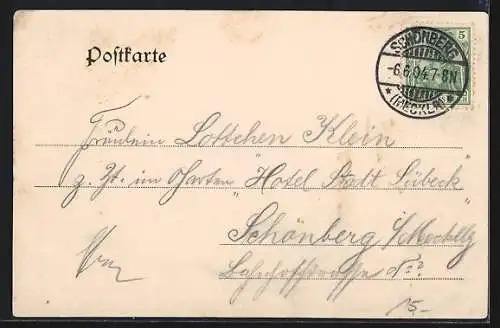 Postkarte
5
SCHÖNBERG
-6.6.04.7-8N
* (MECKLB) *
Fräulein Lottchen Klein
z. Zt. im Garten "Hotel Stadt Lübeck"
Schönberg i/Mecklbg
Bahnhofstrasse
15-